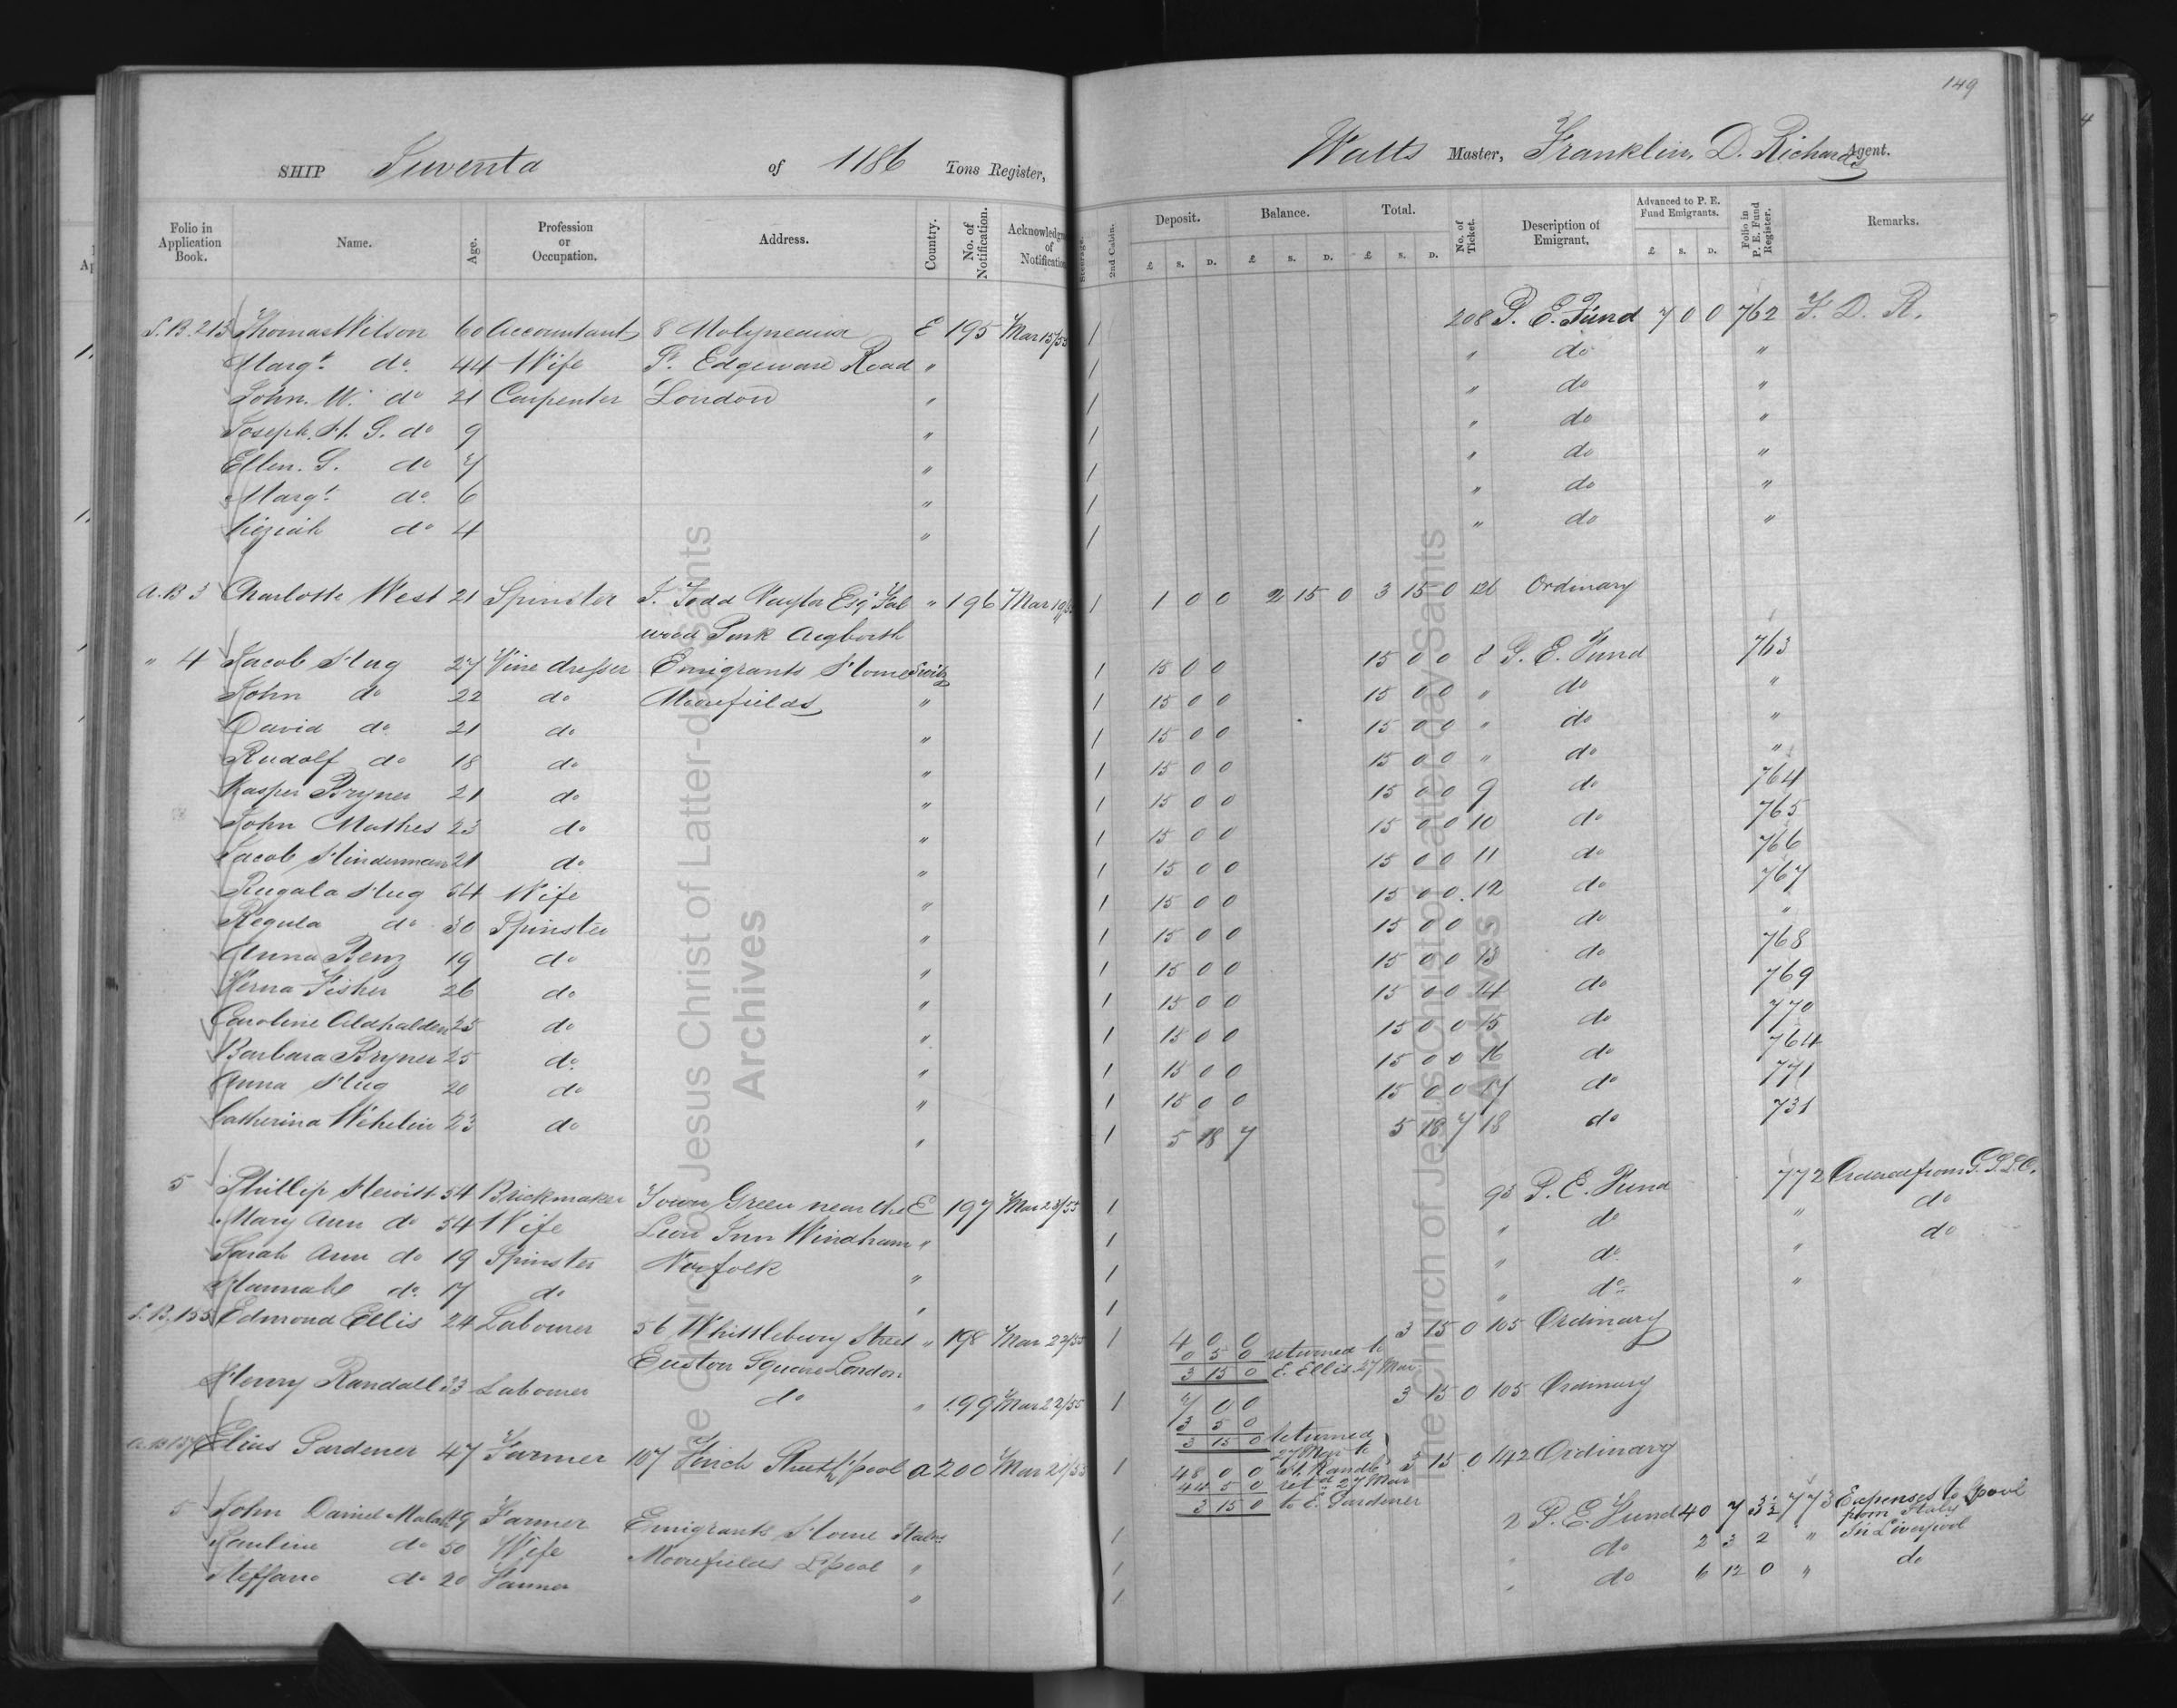 149
SHIP Juventa of 1186 Tons Register, Watts Master, Franklin. D. Richards Agent.
Folio in Application Book. Name. Age. Profession or Occupation. Address. Country. No. of Notification. Acknowledgm of Notification Steerage. 2nd Cabin. Deposit. £ s. D. Balance. £ s. D. Total. £ s. D. No. of Ticket. Description of Emigrant. Advanced to P. E. Fund Emigrants. £ s. D. Folio in P. E. Fund Register. Remarks.
S.B. 213 Thomas Wilson 60 Accountant 8 Molyneaux E 195 Mar 15/55 1 208 P. E. Fund 7 0 0 762 F. D. R.
Margt. do. 44 Wife St. Edgeware Road " 1 " do "
John. W. do 21 Carpenter London " 1 " do "
Joseph. H. G. do 9 " 1 " do "
Ellen. S. do 7 " 1 " do "
Margt. do. 6 " 1 " do "
Keziah do 4 " 1 " do "
A.B 3 Charlotte West 21 Spinster J. Todd Naylor Esqr " 196 Mar 19/55 1 1 0 0 2 15 0 3 15 0 126 Ordinary
wood Park Aigborth
" 4 Jacob Hug 27 Vine dresser Emigrants Home Switz 1 15 0 0 15 0 0 8 P. E. Fund 763
John do 22 do Moorfields " 1 15 0 0 15 0 0 " do "
David do. 21 do " 1 15 0 0 15 0 0 " do "
Rudolf do 18 do " 1 15 0 0 15 0 0 " do "
Kasper Bryner 21 do " 1 15 0 0 15 0 0 9 do 764
John Mathes 23 do " 1 15 0 0 15 0 0 10 do 765
Jacob Hinderman 21 do " 1 15 0 0 15 0 0 11 do 766
Rugala Hug 54 Wife " 1 15 0 0 15 0 0 12 do 767
Regula do 30 Spinster " 1 15 0 0 15 0 0 do "
Anna Benz 19 do " 1 15 0 0 15 0 0 13 do 768
Verna Fisher 26 do " 1 15 0 0 15 0 0 14 do 769
Caroline Aldhalden 25 do " 1 15 0 0 15 0 0 15 do 770
Barbara Bryner 25 do. " 1 15 0 0 15 0 0 16 do 764
Anna Hug 20 do " 1 15 0 0 15 0 0 17 do 771
Catherina Wihelin 23 do " 1 5 18 7 5 18 7 18 do 731
5 Phillip Hewitt 54 Brickmaker Town Green near the E 197 Mar 23/55 1 93 P. E. Fund 772 Ordered from G.S.L.C.
Mary Ann do 54 Wife Lion Inn Windham " 1 " do " do
Sarah Ann do 19 Spinster Norfolk " 1 " do " do
Hannah do. 17 do " 1 " do "
S.B. 155 Edmond Ellis 24 Labourer 56 Whittlebury Street " 198 Mar 22/55 1 4 0 0 3 15 0 105 Ordinary
Euston Square London 0 5 0 returned to
3 15 0 E. Ellis. 27 Mar
Henry Randall 33 Labourer do " 199 Mar 22/55 1 7 0 0 3 15 0 105 Ordinary
3 5 0
3 15 0 returned 27 Mar to H. Randl
A.B 137 Elias Gardener 47 Farmer 107 Finch Street L'pool A 200 Mar 24/55 1 48 0 0 3 15 0 142 Ordinary
44 5 0 retd 27 Mar
3 15 0 to E. Gardener
5 John Daniel Malan 49 Farmer Emigrants Home Italy 1 2 P. E. Fund 40 7 3½ 773 Expenses to L'pool from Italy
Pauline do 50 Wife Moorfields L'pool " 1 " do 2 3 2 " In Liverpool
Steffano do 20 Farmer " 1 " do 6 12 0 " do
The Church of Jesus Christ of Latter-day Saints
Archives
The Church of Jesus Christ of Latter-day Saints
Archives